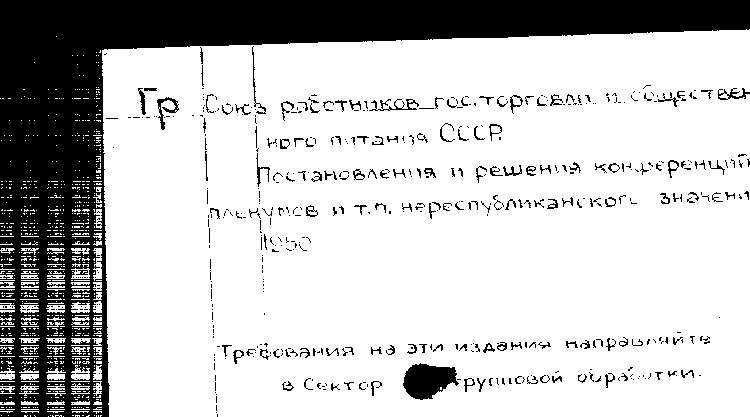 Гр Союз работников гос. торговли и обществен
ного питания СССР.
Постановления и решения конференций
пленумов и т.п. нереспубликанского значени
1950
Требования на эти издания направляйте
в Сектор групповой обработки.